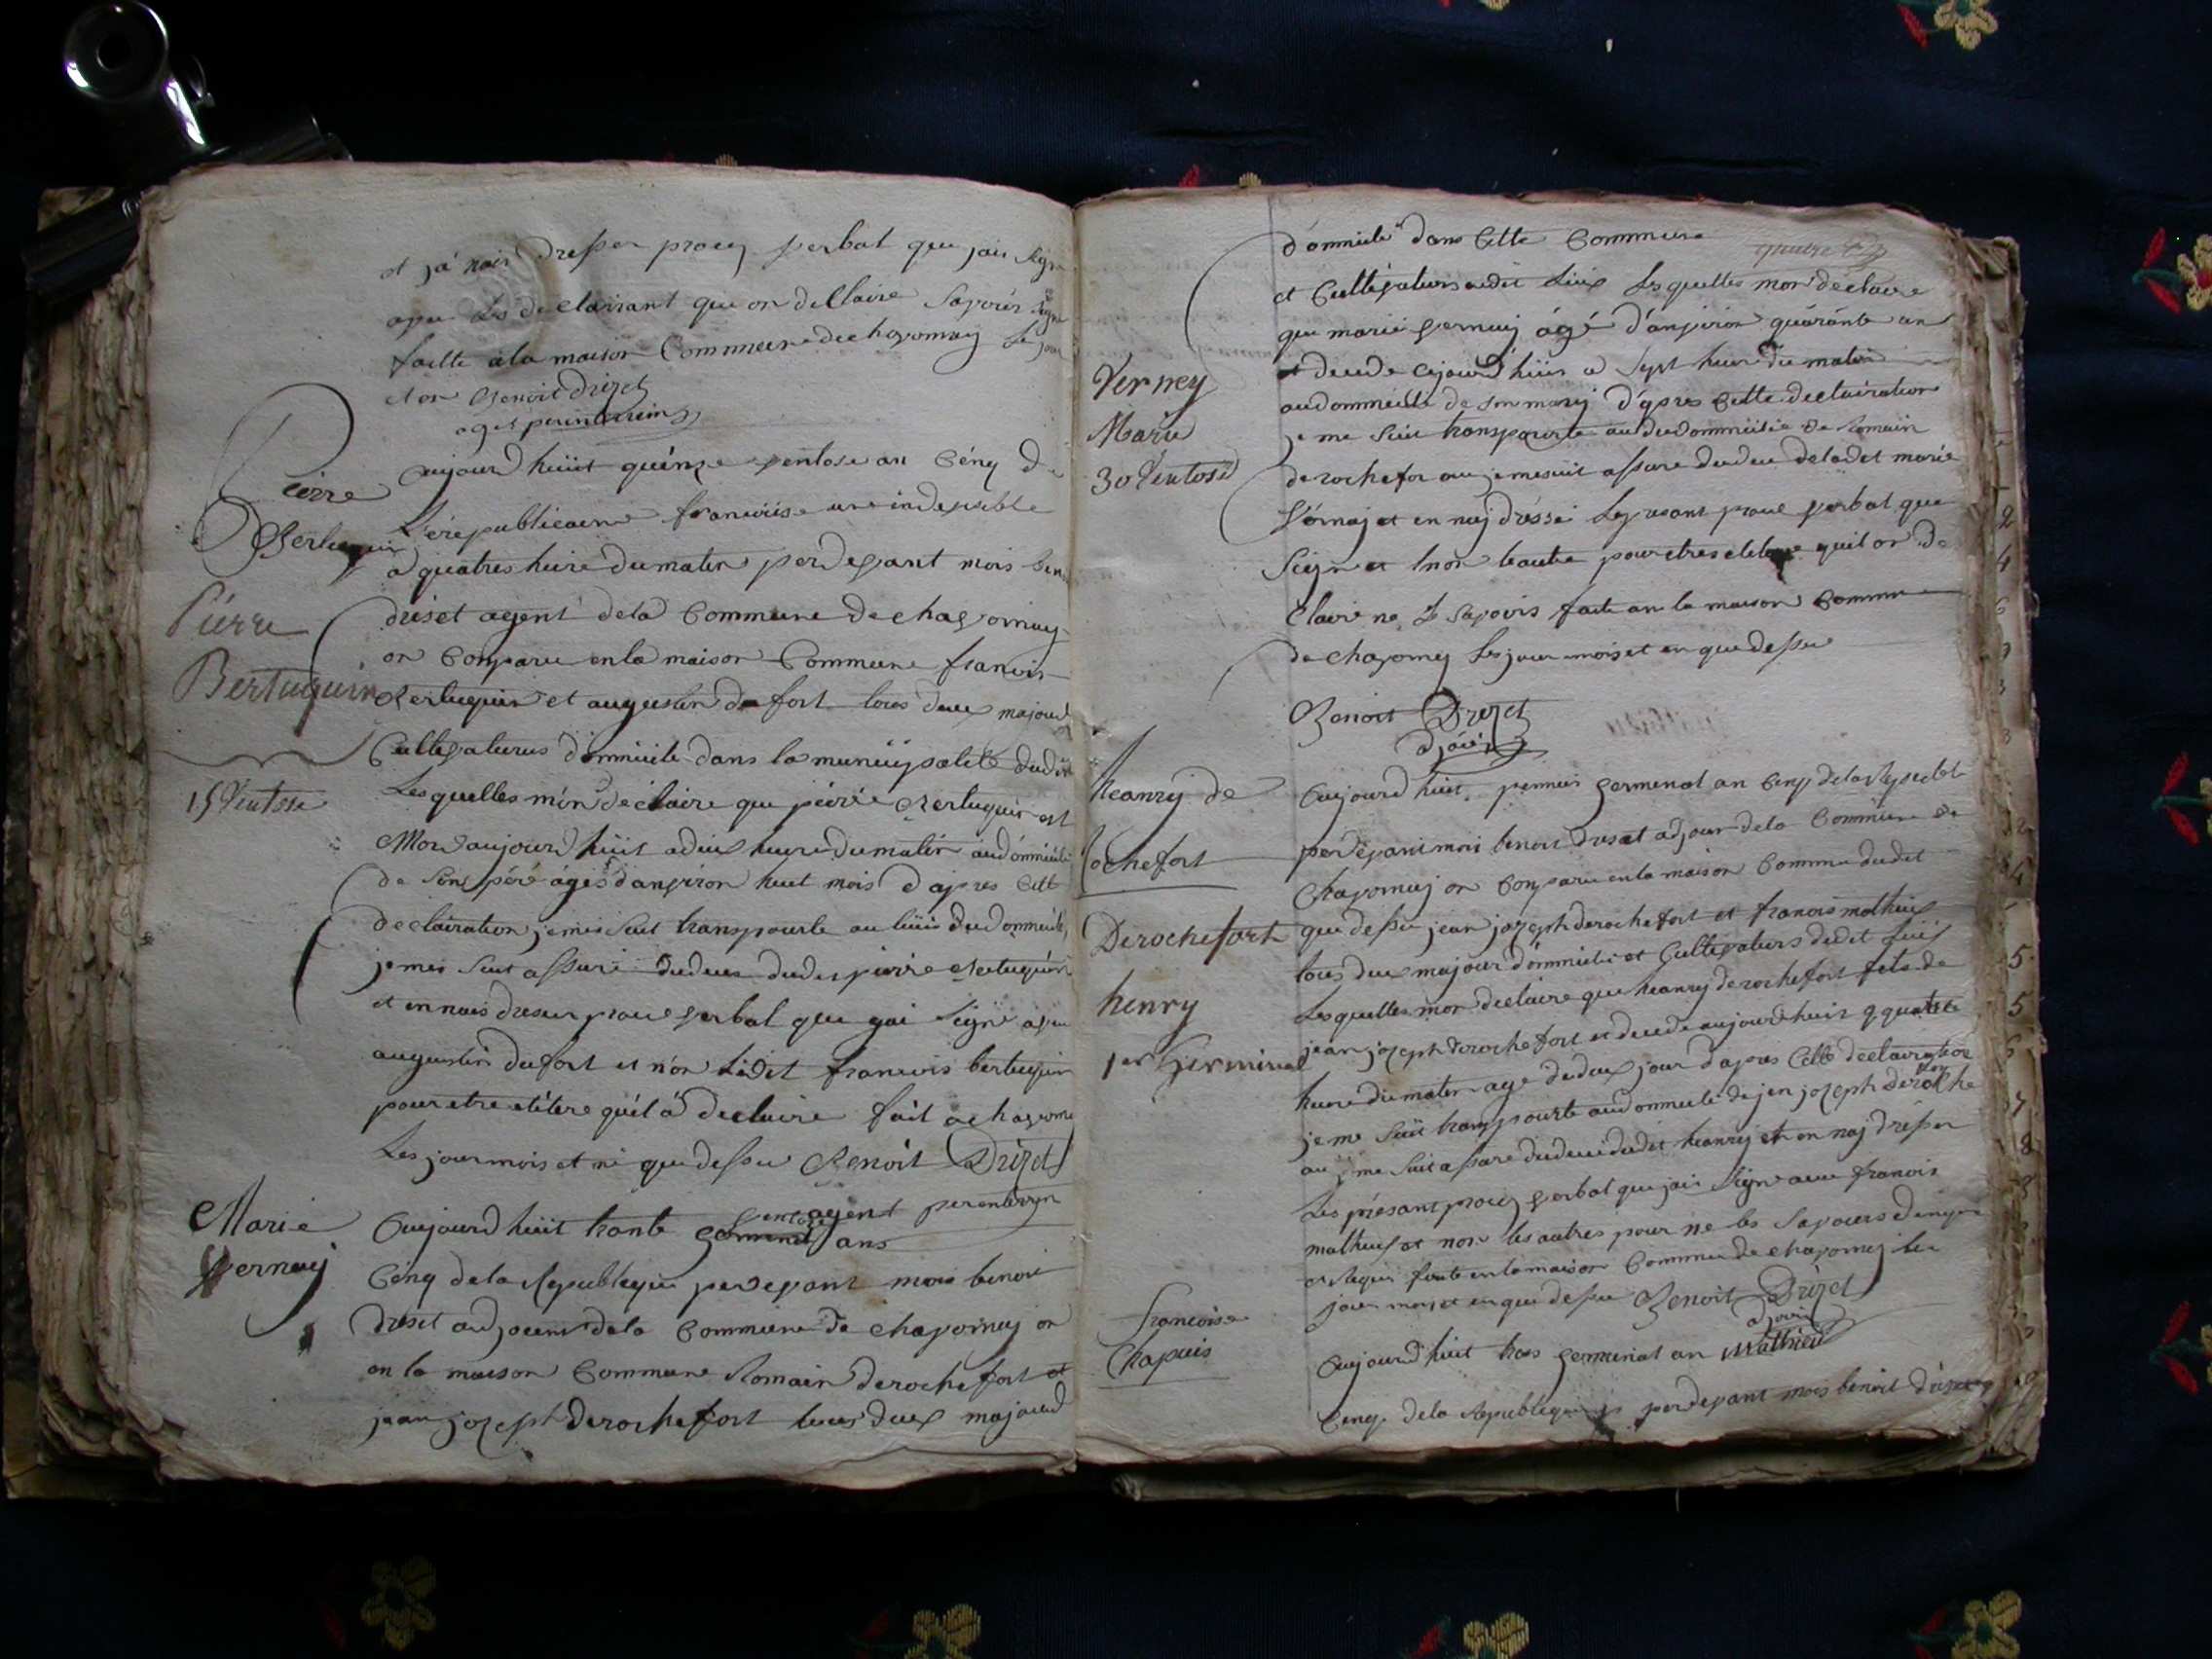 et já nais dresser procy verbal que jais signe
apres les declairant que on declaire savoir signe
faitte a la maison Commeune de chavornay le jour
et an Benoit drizet
aget perintereim
Pierre
Bertuquin
aujourd huit quénze ventose an Cénq de
La république francoise une indevisible
a quatres heire du matin perdevant mois ben
driset agent de la Commune de chavornay
on Conparu en la maison Commune francois
Pierre
Bertuquin
15 Ventose
Bertuquin et augustin dufort tous deux majeur
Cultivaturus domicile dans la municipalite dudit
Les quelles m'on declaire que peirre Bertuquin est
Mord aujourd huit a deux heure du matin au domicile
de sons pere agés d'anviron huit mois d'apres cette
declairation je mes suit transpourte au lieus du domicile,
je mes suit assure dudeces dudit pierre Bertuquin
et en nais dreser proces verbal que jai signe avec
augustin dufort et non ledit francois bertuquin
pour etre eletere quil a declaire fait a chavorna
Les jour mois et ... que dessu Benoit Drizet
agent perenterim
Marie
Vernay
Aujourd huit trante ventose ans
Cénq de la Republique perdevant mois benoit
driset adjoient de la Commune de chavornay on
en la maison Commune Romain derochefort et
jean jozeph derochefort tous deux majeurd
domicile dans Cette Commune
et Cultivaturs audit Lieux Lesquelles mon declaire
que marie vernay agé d'anviron quárante an
et decede cejourd'huis a sept heure du matin
au dommicile de son mary d'apres Cette declairation
je me suit transpourte au dudommicile de Romain
Verney
Marie
30 Ventose
derochefor ou je me suit assure dudece de ladet marie
Vernay et en naj dressé Le presant proces verbal que
Signe et non leautre pour etres eletere quil on de
Claire ne le savoirs faite an la maison Commune
de chavorney Les jour mois et en que dessu
Benoit Drizet
adjoin
heanry de
rochefort
Aujourd huit, premier germinal an Cenq de la Republi
perdevant mois benoit driset adjoin de la Commune de
Chavornay on Conparu en la maison Commune dudit
que dessu jean jozeph derochefort et francois mathieux
tous deux majour domicile et Cultivaturs dudit Lieux
Derochefort
henry
1er Germinal
Lesquelles mon declaire que heanry derochefort fils de
jean jozeph derochefort et decede aujourd'huit a quatre
heure du matin age dedeux jour d'apres Cette declairation
je me suit transpourte au dommicile de jean jozeph deroche
fort
ou je me suit assure dudece dudit heanry et en naj dresser
Les présant procy verbal que jais signe avec francois
mathieux et non les autres pour ne les savoirs d'anquis
et requis faite en la maison Commune de chavornay les
jour mois et en que dessu Benoit Drizet
adjoin
Mathieu
francoise
Chapuis
Aujourd huit trois germinal an
Cenq de la Republique perdevant mois benoit driset